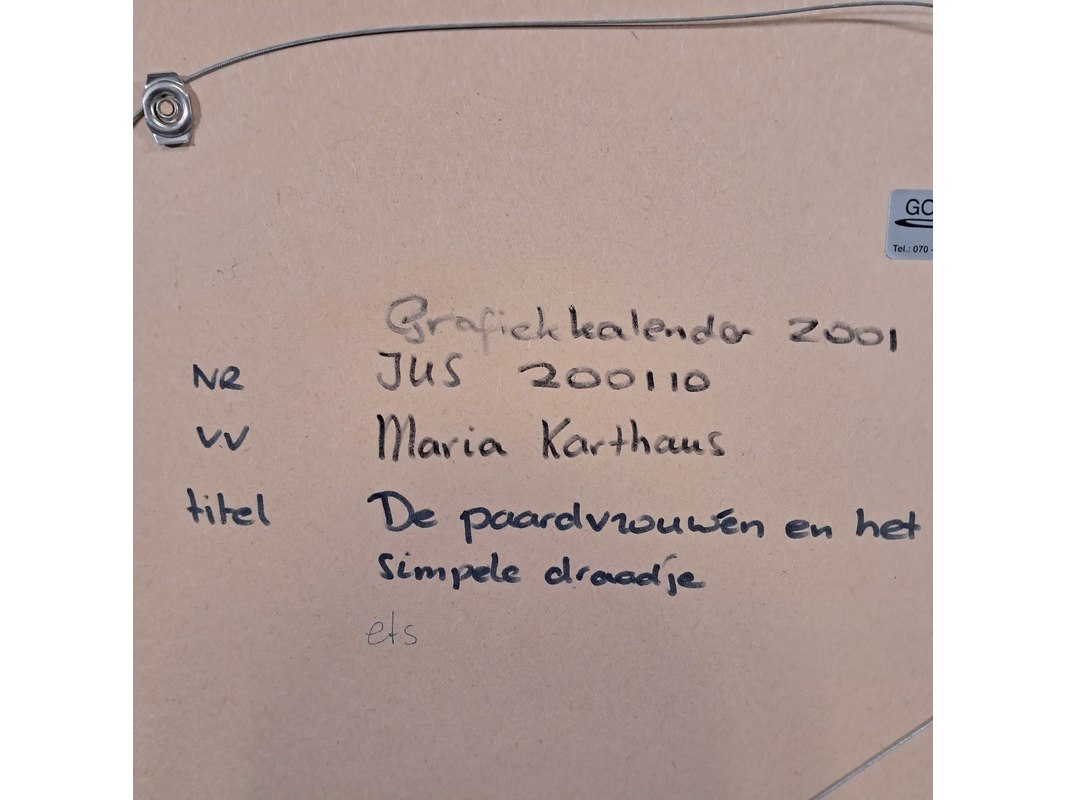 GO
Tel.: 070 -
Grafiekkalender 2001
NR JUS 200110
VV Maria Karthaus
titel De paardvrouwen en het
simpele draadje
ets